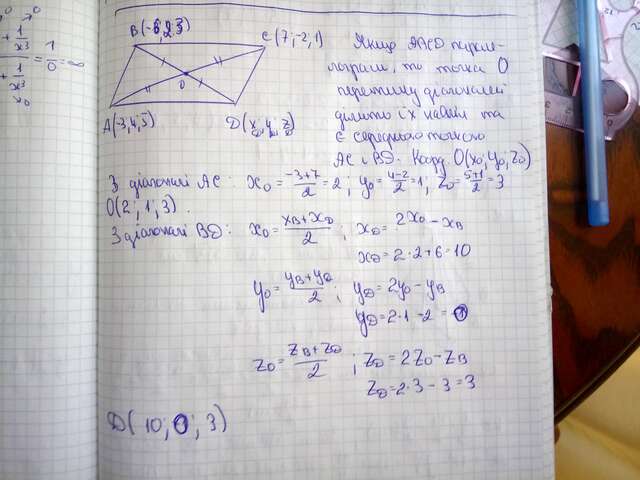 B(-6;2;3)
C(7;-2;1)
A(-3;4;5)
D(x;y;z)
O
Якщо ABCD парале-
лограм, то точка O
перетину діагоналей
ділить їх навпіл та
є серединою
AC і BD. Нехай O(x₀; y₀; z₀)
З діагоналі AC: x₀ = (-3+7)/2 = 2; y₀ = (4-2)/2 = 1; z₀ = (5+1)/2 = 3
O(2; 1; 3)
З діагоналі BD: x₀ = (x_B + x_D)/2; x_D = 2x₀ - x_B
x_D = 2·2+6=10
y₀ = (y_B + y_D)/2; y_D = 2y₀ - y_B
y_D = 2·1 - 2 = 0
z₀ = (z_B + z_D)/2; z_D = 2z₀ - z_B
z_D = 2·3 - 3 = 3
D(10; 0; 3)